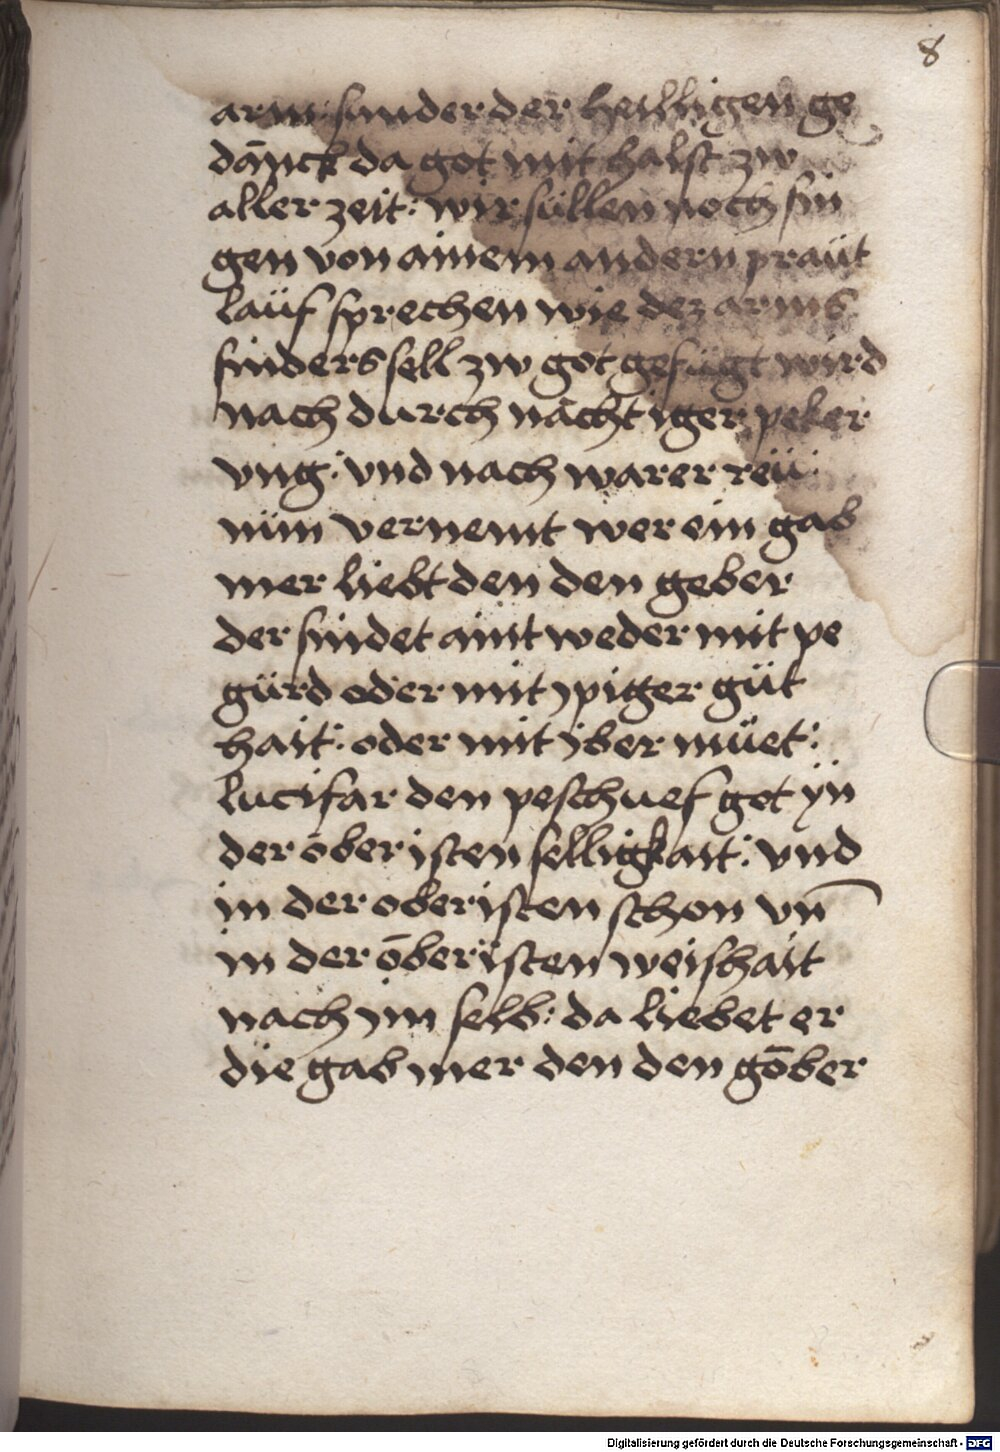 8
arm sunder der heilligen ge
dānck da got mit halst zw
aller zeit: wir süllen noch sin
gen von ainem andern praüt
laüf sprechen wie dez arms
sinders sell zw got gefügt wird
nach durch nāchtiger peker
ung: vnd nach warer reü:
nün vernemt wer ein gab
mer liebt den den geber
der sindet aint weder mit pe
gürd oder mit ypiger güt
hait: oder mit yber müet:
lucifar den peschuef got ÿn
der ōberisten selligkait: vnd
in der oberisten schon vn̄
in der ōberisten weishait
nach im selb: da liebet er
die gab mer den den gōber
Digitalisierung gefördert durch die Deutsche Forschungsgemeinschaft - DFG